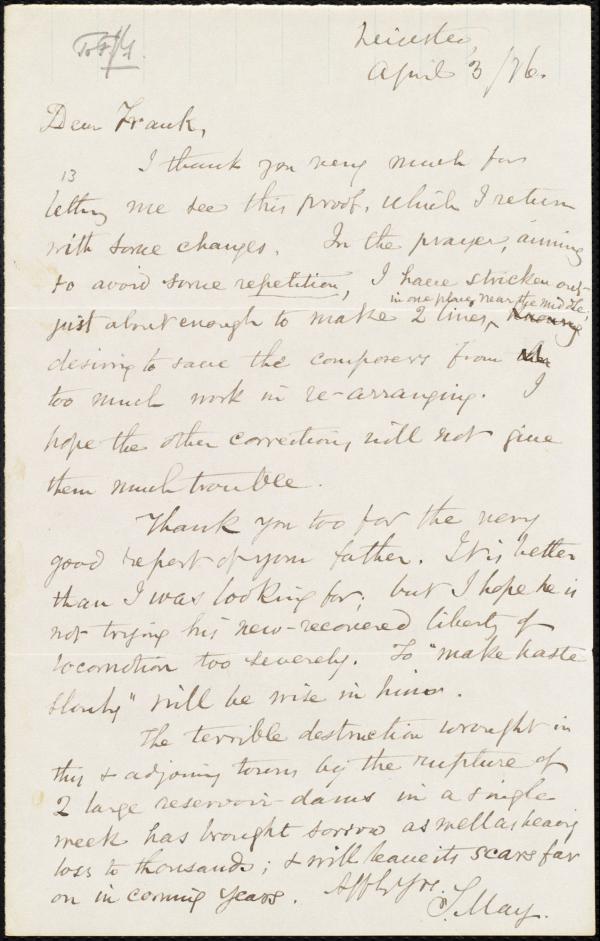 Leicester,
April 3/76.
Dear Frank,
I thank you very much for
13
letting me see this proof, which I return
with some changes. In the prayer, aiming
to avoid some repetition, I have stricken out
in one place, near the middle,
just about enough to make 2 lines,
desiring to save the composers from
too much work in re-arranging. I
hope the other corrections will not give
them much trouble.
Thank you too for the very
good report of your father. It is better
than I was looking for; but I hope he is
not trying his new-recovered liberty of
locomotion too severely. To "make haste
slowly" will be wise in him.
The terrible destruction wrought in
this & adjoining towns by the rupture of
2 large reservoir-dams in a single
week has brought sorrow as well as heavy
loss to thousands; & will leave its scars far
on in coming years. Affly yrs.
S. May.